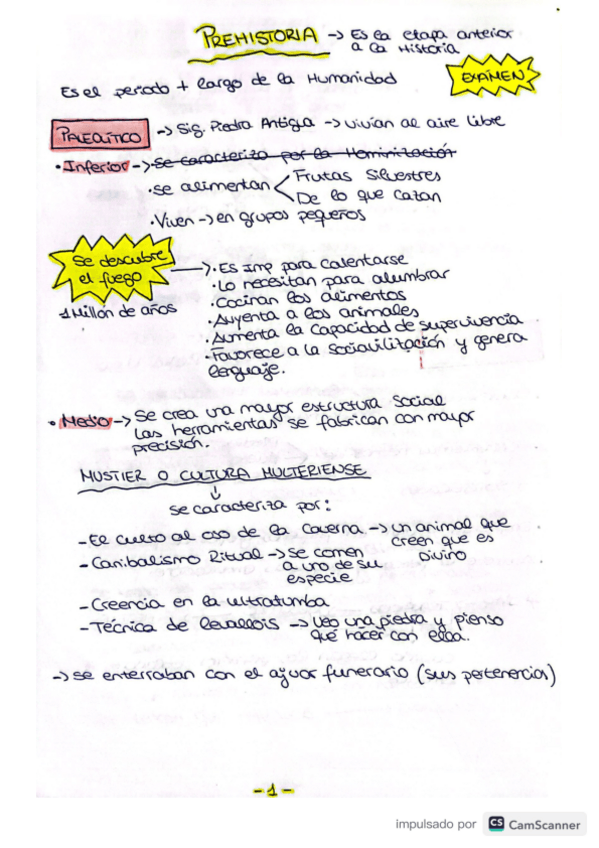 PREHISTORIA -> Es la etapa anterior
a la Historia
Es el periodo + largo de la Humanidad
EXAMEN
PALEOLÍTICO -> Sig. Piedra Antigua -> Vivían al aire libre
• Inferior -> Se caracteriza por la Hominización
• se alimentan < Frutas Silvestres
De lo que cazan
• Viven -> en grupos pequeños
Se descubre
el fuego
1 Millón de años
-> • Es Imp para calentarse
• Lo necesitan para alumbrar
• Cocinan los alimentos
• Auyenta a los animales
• Aumenta la capacidad de supervivencia
• Favorece a la sociavilitación y genera
lenguaje.
• Medio -> Se crea una mayor estructura social
Las herramientas se fabrican con mayor
precisión.
MUSTIER O CULTURA MULTERIENSE
↓
se caracteriza por:
- El culto al oso de la Caverna -> un animal que
creen que es
Divino
- Canibalismo Ritual -> se comen
a uno de su
especie
- Creencia en la ultratumba
- Técnica de levallois -> Veo una piedra y pienso
que hacer con ella.
-> se enterraban con el ajuar funerario (sus pertenencias)
- 1 -
impulsado por CS CamScanner